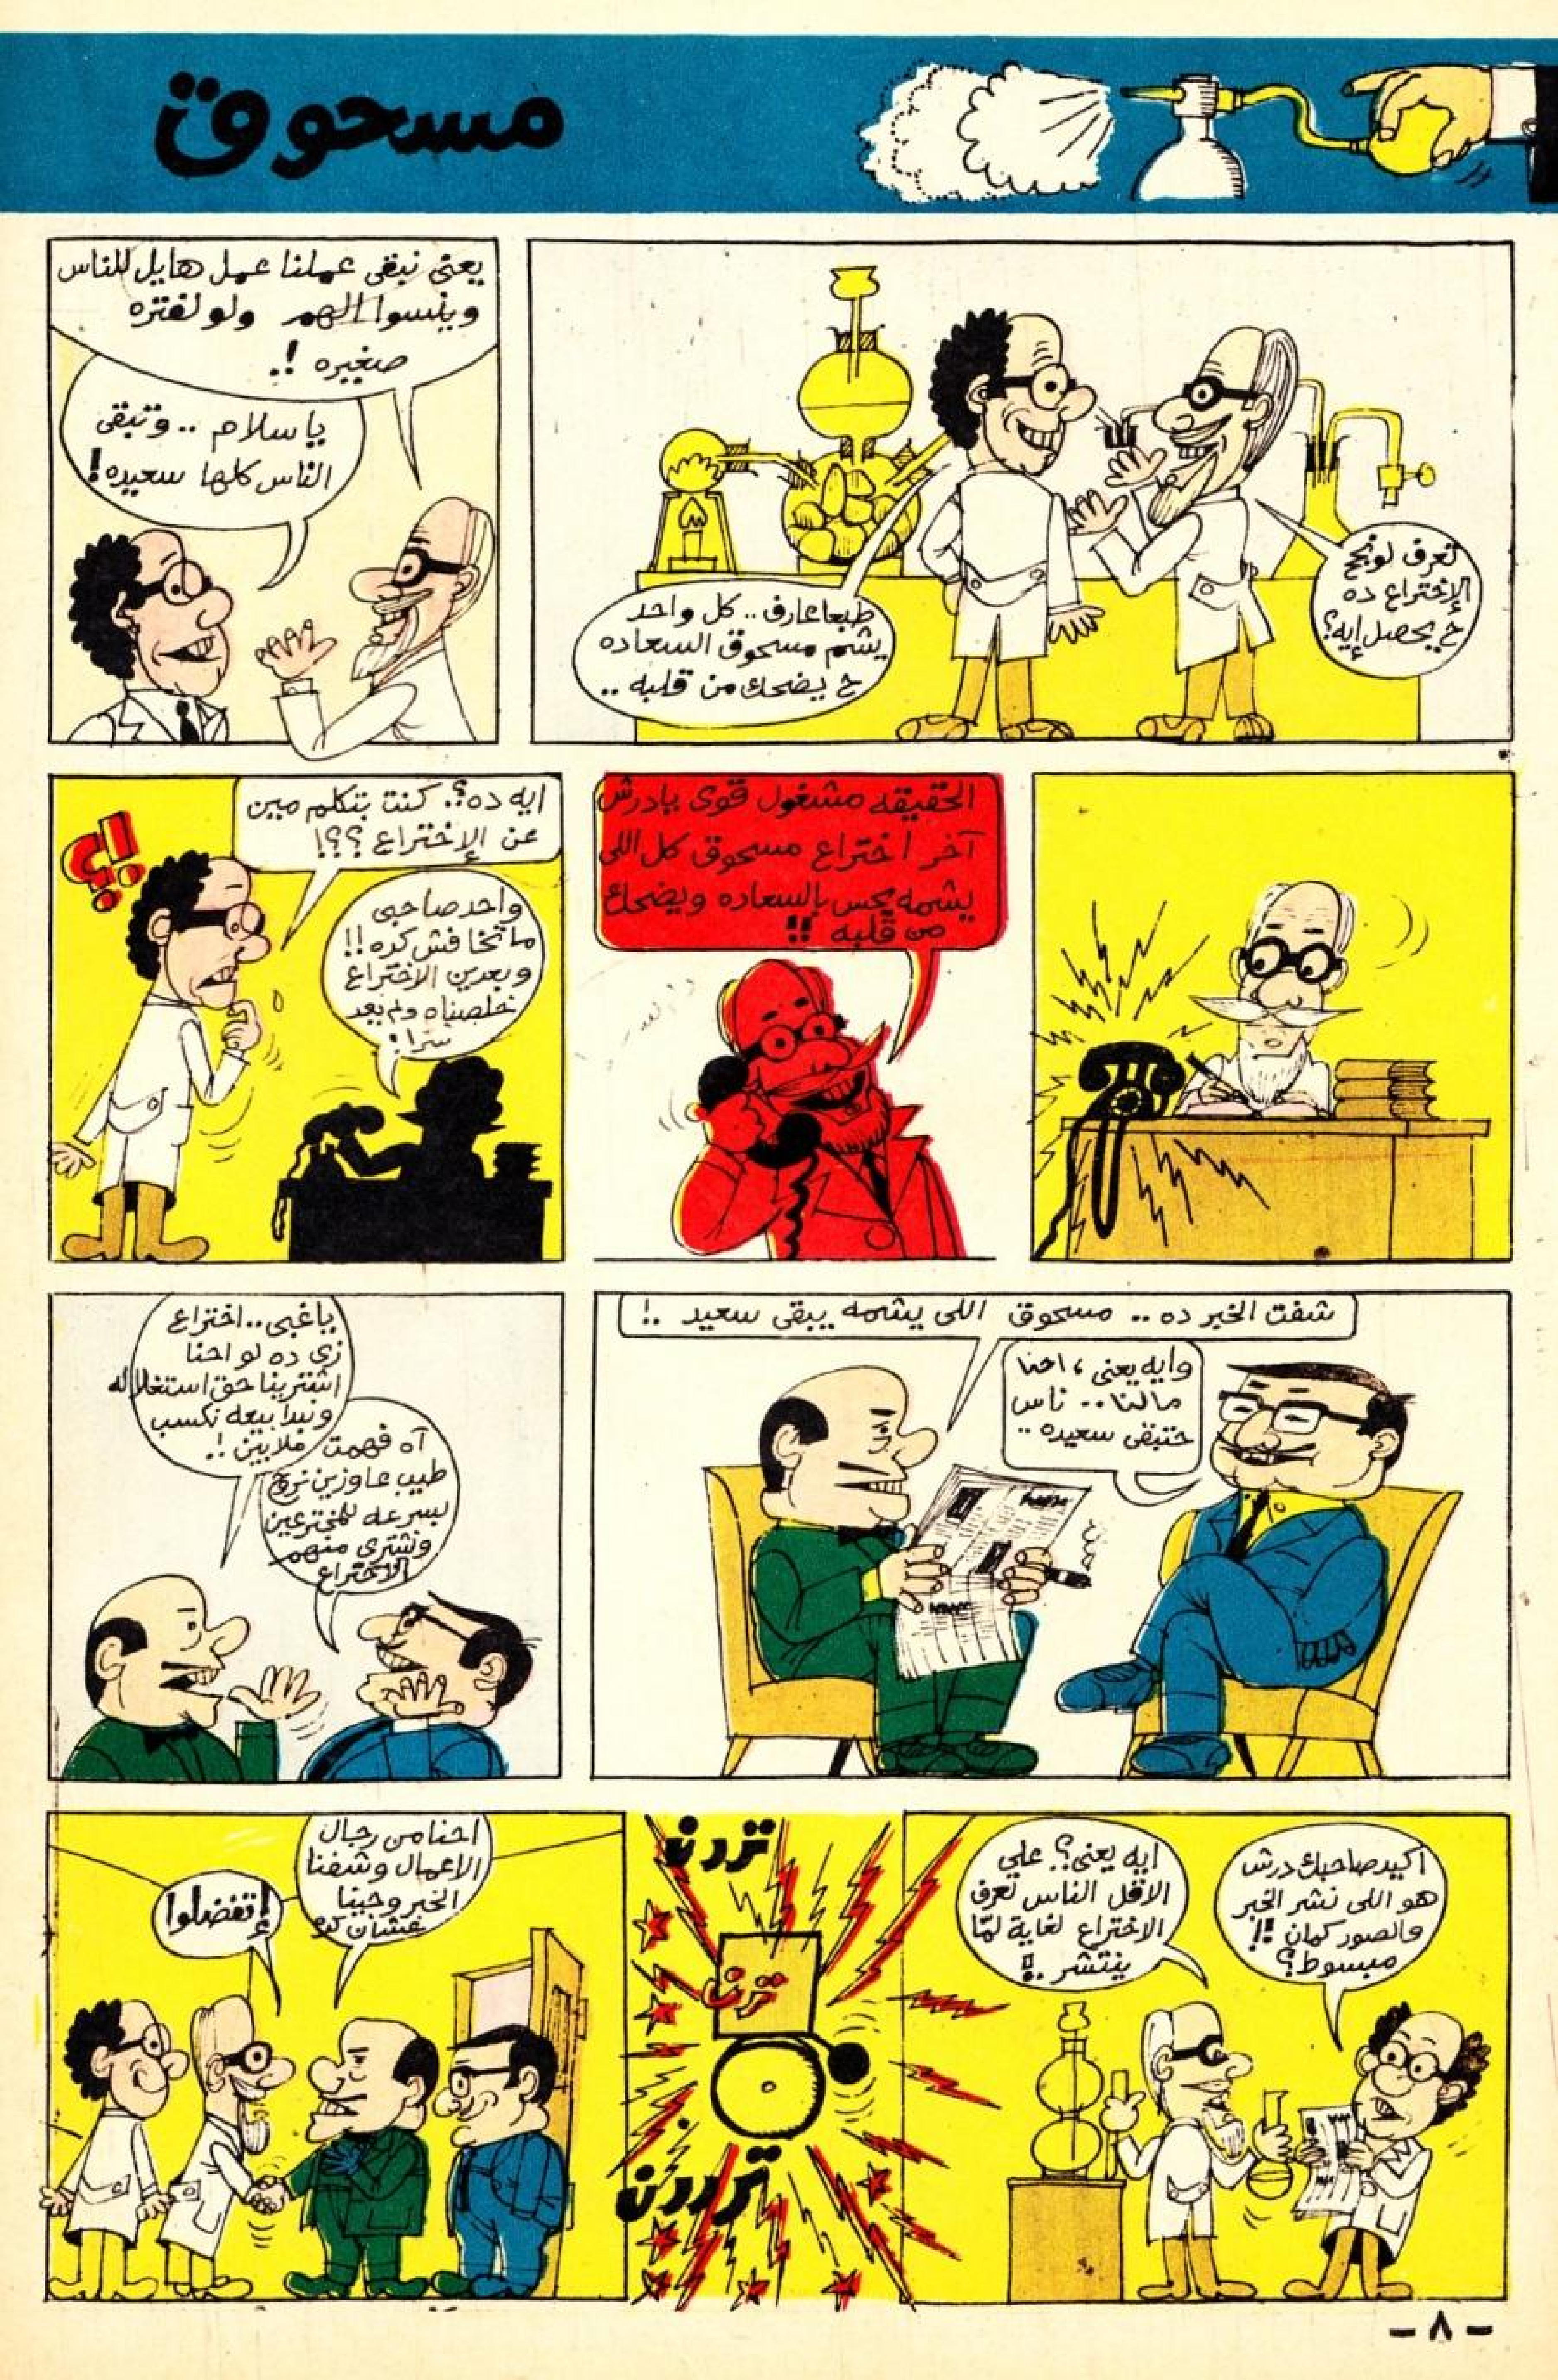 مسحوق
تعرف لو نجح
الإختراع ده
ح يحصل إيه؟
طبعا عارف.. كل واحد
يشم مسحوق السعاده
ح يضحك من قلبه ..
يعنى نبقى عملنا عمل هايل للناس
وينسوا الهم ولو لفتره
صغيره !.
ياسلام .. وتبقى
الناس كلها سعيده!
الحقيقه مشغول قوى يادرش
آخر اختراع مسحوق كل اللى
يشمه يحس بالسعاده ويضحك
من قلبه !!
ايه ده؟. كنت بتكلم مين
عن الإختراع ؟؟!
!؟
واحد صاحبى
ماتخافش كده!!
وبعدين الاختراع
خلصناه ولم يعد
سرا!
شفت الخبر ده .. مسحوق اللى يشمه يبقى سعيد !.
وايه يعنى ، احنا
مالنا .. ناس
حتبقى سعيده ..
ياغبى.. اختراع
زى ده لو احنا
اشترينا حق استغلاله
ونبدا بيعه نكسب
ملايين !.
آه فهمت
طيب عاوزين نروح
بسرعه للمخترعين
ونشترى منهم
الاختراع
اكيد صاحبك درش
هو اللى نشر الخبر
والصور كمان !!
مبسوط؟
ايه يعنى؟ على
الاقل الناس تعرف
الاختراع لغاية لمّا
ينتشر .!!
تررن
ترن
تررررن
احنا من رجال
الاعمال وشفنا
الخبر وجينا
عشان كده
إتفضلوا
- ٨ -